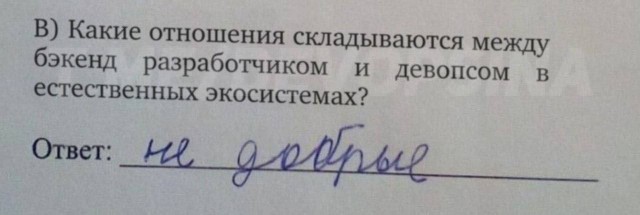 В) Какие отношения складываются между
бэкенд разработчиком и девопсом в
естественных экосистемах?
Ответ: не добрые